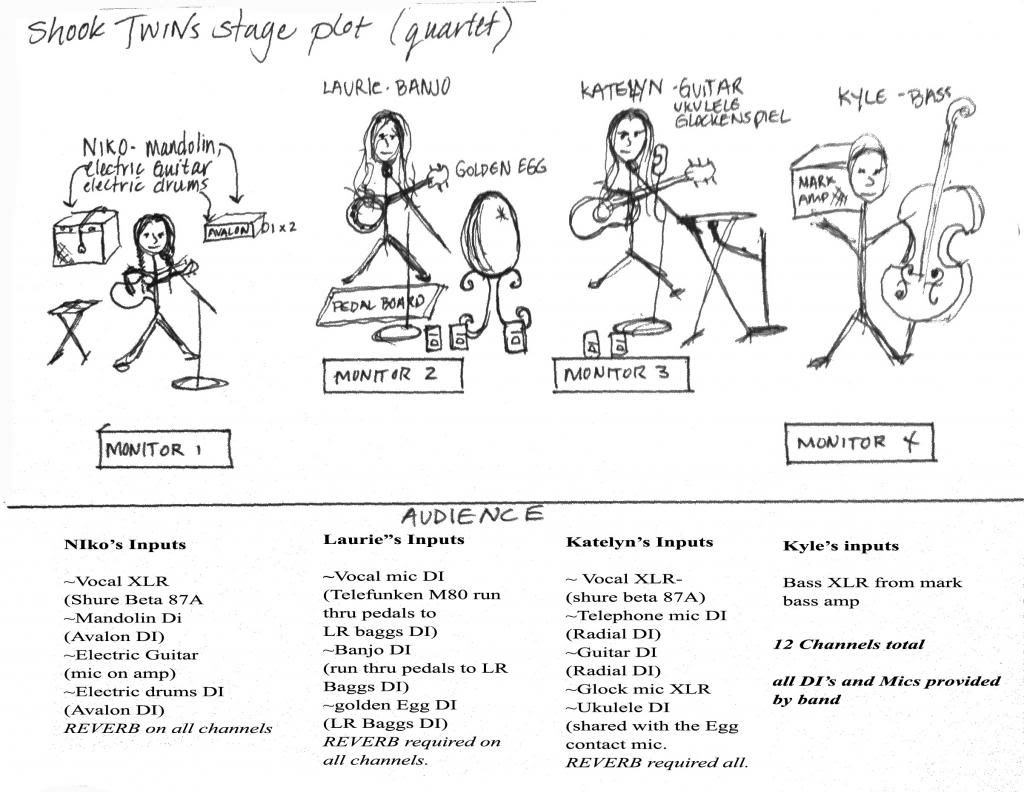 Shook Twins stage plot (quartet)
NIKO- Mandolin,
electric Guitar
electric drums
AVALON DI x 2
LAURIE - BANJO
GOLDEN EGG
PEDAL BOARD
DI
DI
DI
KATELYN - GUITAR
UKULELE
GLOCKENSPIEL
DI
DI
KYLE - BASS
MARK
AMP
MONITOR 1
MONITOR 2
MONITOR 3
MONITOR 4
AUDIENCE
NIko's Inputs
~Vocal XLR
(Shure Beta 87A
~Mandolin Di
(Avalon DI)
~Electric Guitar
(mic on amp)
~Electric drums DI
(Avalon DI)
REVERB on all channels
Laurie"s Inputs
~Vocal mic DI
(Telefunken M80 run
thru pedals to
LR baggs DI)
~Banjo DI
(run thru pedals to LR
Baggs DI)
~golden Egg DI
(LR Baggs DI)
REVERB required on
all channels.
Katelyn's Inputs
~ Vocal XLR-
(shure beta 87A)
~Telephone mic DI
(Radial DI)
~Guitar DI
(Radial DI)
~Glock mic XLR
~Ukulele DI
(shared with the Egg
contact mic.
REVERB required all.
Kyle's inputs
Bass XLR from mark
bass amp
12 Channels total
all DI's and Mics provided
by band